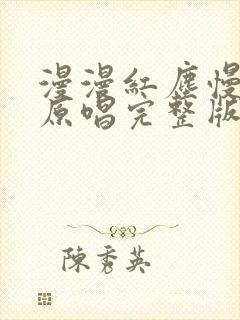 漫漫紅塵慢
原唱完整版
陳秀英